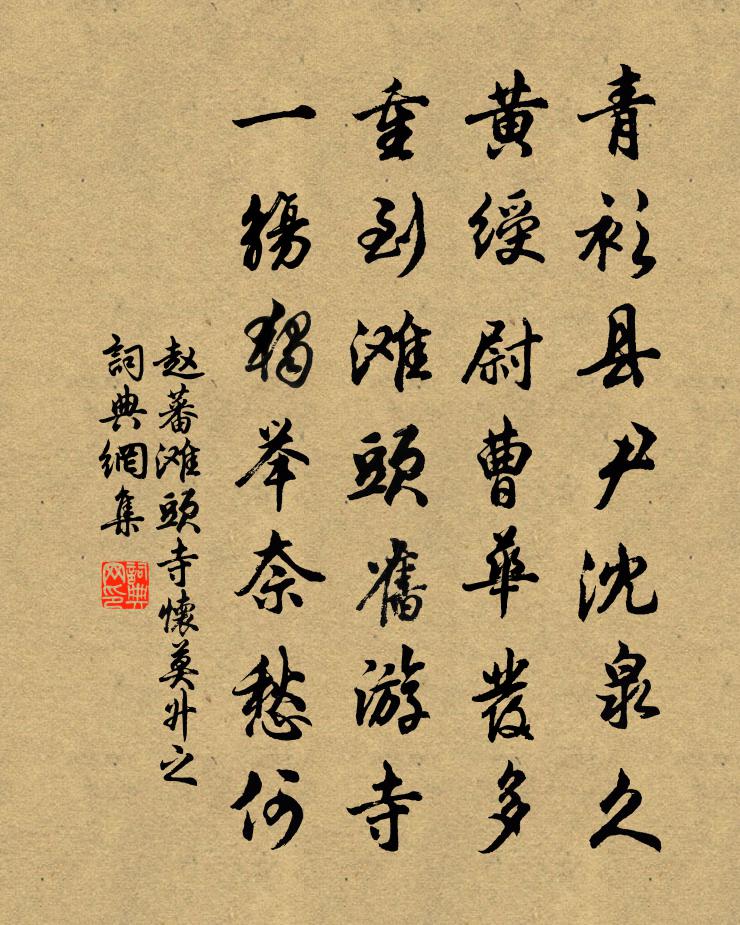 青衫县尹沈泉久
黄绶尉曹华发多
重到滩头旧游寺
一觞独举奈愁何
赵蕃滩頭寺懷莫升之
詞典網集
詞典网印